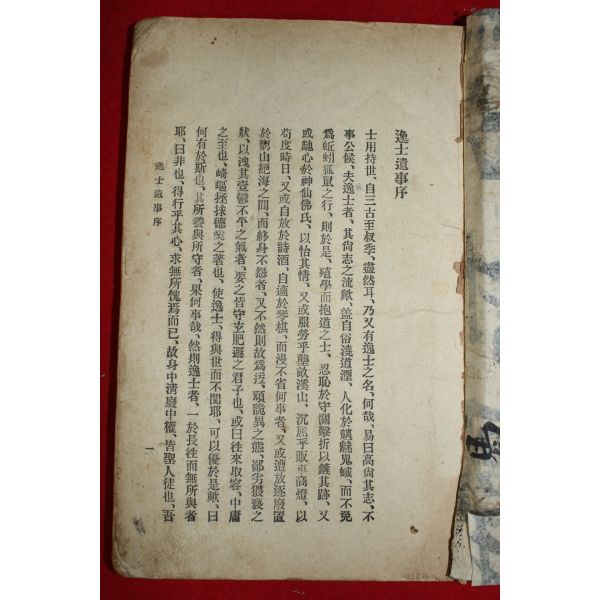 逸士遺事序
士用持世、自三古至叔季、盡然耳、乃又有逸士之名、何哉、易曰高尙其志、不
事公侯、夫逸士者、其尙志之流歟、盖自俗澆道湮、人化於魑魅鬼蜮、而不免
爲蚯蚓狐鼠之行、則於是、殖學而抱道之士、忍恥於守關擊折以鏟其跡、又
或馳心於神仙佛氏、以怡其情、又或服勞乎壟畝溪山、沉屈乎販 商燈、以
苟度時日、又或自放於詩酒、自適於琴棋、而漫不省何事者、又或遭放逐廢置
於窮山絶海之間、而終身不怨者、又不然則故爲 頑詭異之態、鄙劣猥褻之
狀、以洩其壹鬱不平之氣者、要之皆守玄肥遯之君子也、或曰徃來取容、中庸
之至也、崎嶇拯捄德業之著也、使逸士、得與世而不閔耶、可以優於是歟、曰
何有於斯也、其所養與所守者、果何事哉、然則逸士者、一於長徃而無所與者
耶、曰非也、得行乎其心、求無所愧焉而已、故身中淸廢中權、皆聖人徒也、吾
逸士遺事序
一
馬